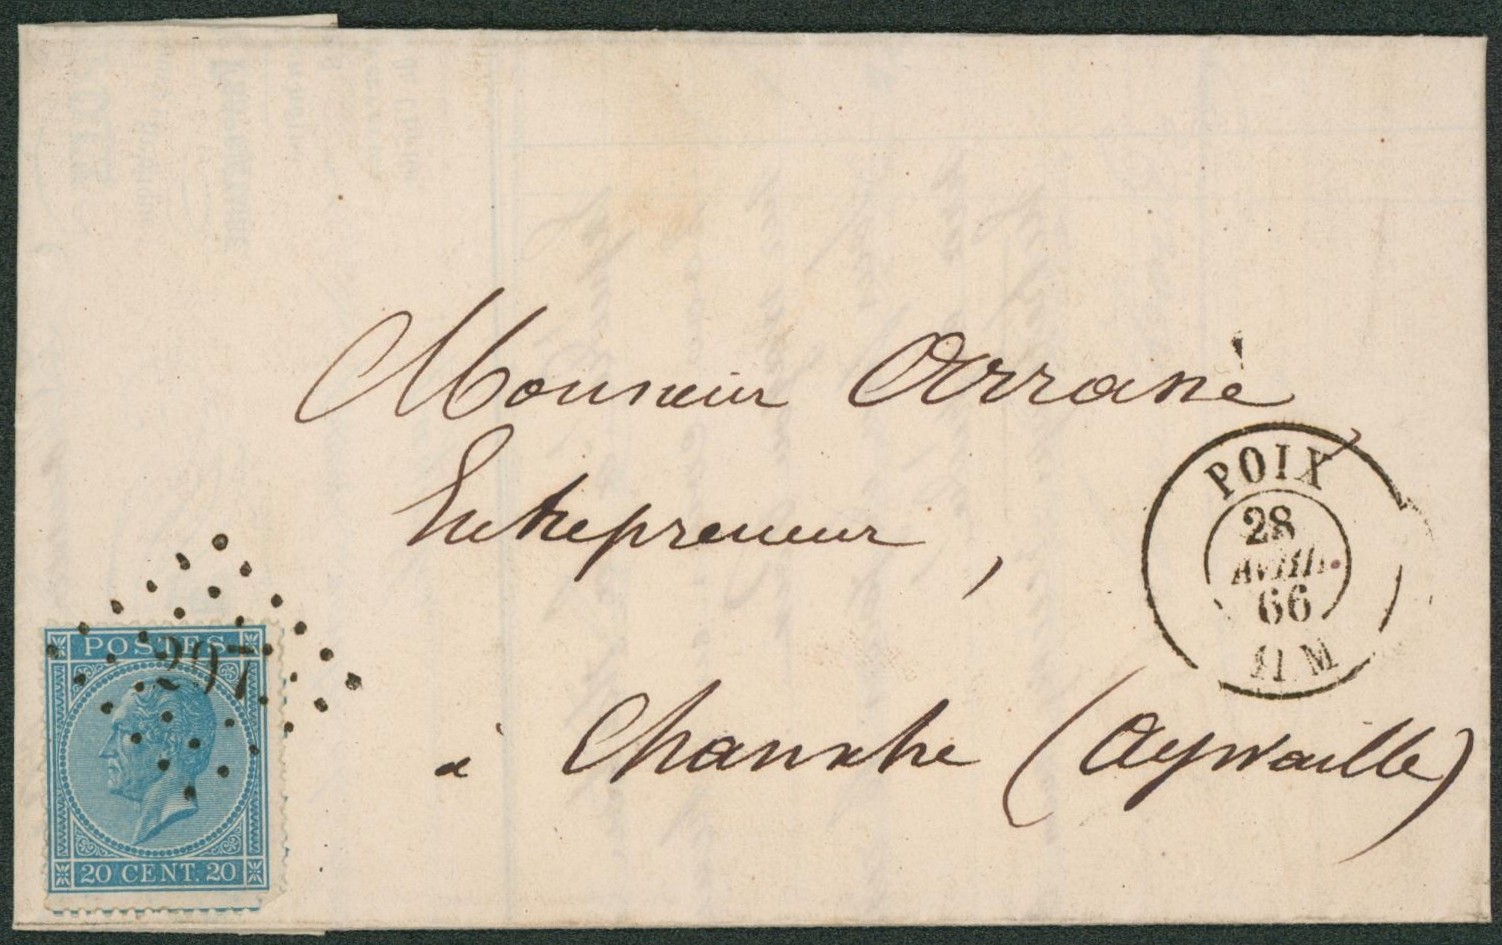 Monsieur Arrasse
Entrepreneur,
à Chanxhe (Aywaille)
POIX
28
AVRIL
66
11 M
POSTES
297
20 CENT. 20